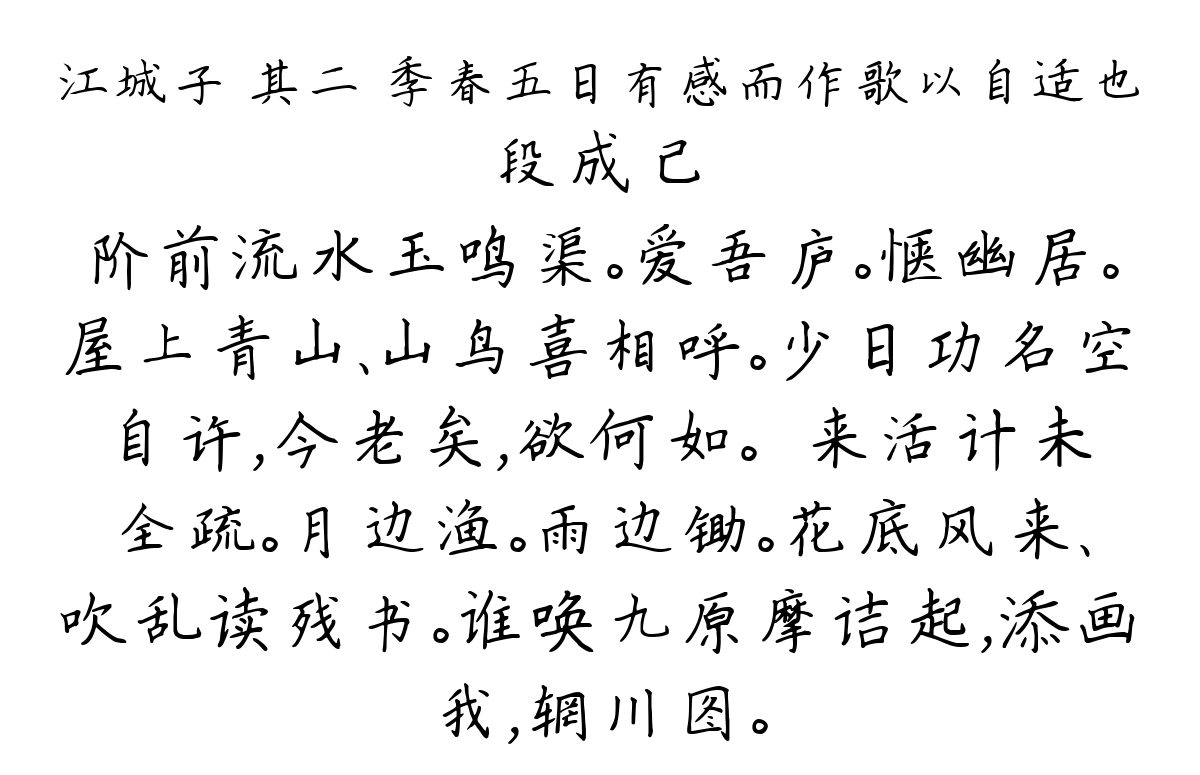 江城子 其二 季春五日有感而作歌以自适也
段成己
阶前流水玉鸣渠。爱吾庐。惬幽居。
屋上青山、山鸟喜相呼。少日功名空
自许,今老矣,欲何如。 来活计未
全疏。月边渔。雨边锄。花底风来、
吹乱读残书。谁唤九原摩诘起,添画
我,辋川图。